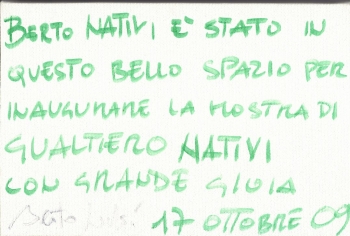 BERTO NATIVI E' STATO IN
QUESTO BELLO SPAZIO PER
INAUGURARE LA MOSTRA DI
GUALTIERO NATIVI
CON GRANDE GIOIA
17 OTTOBRE 09